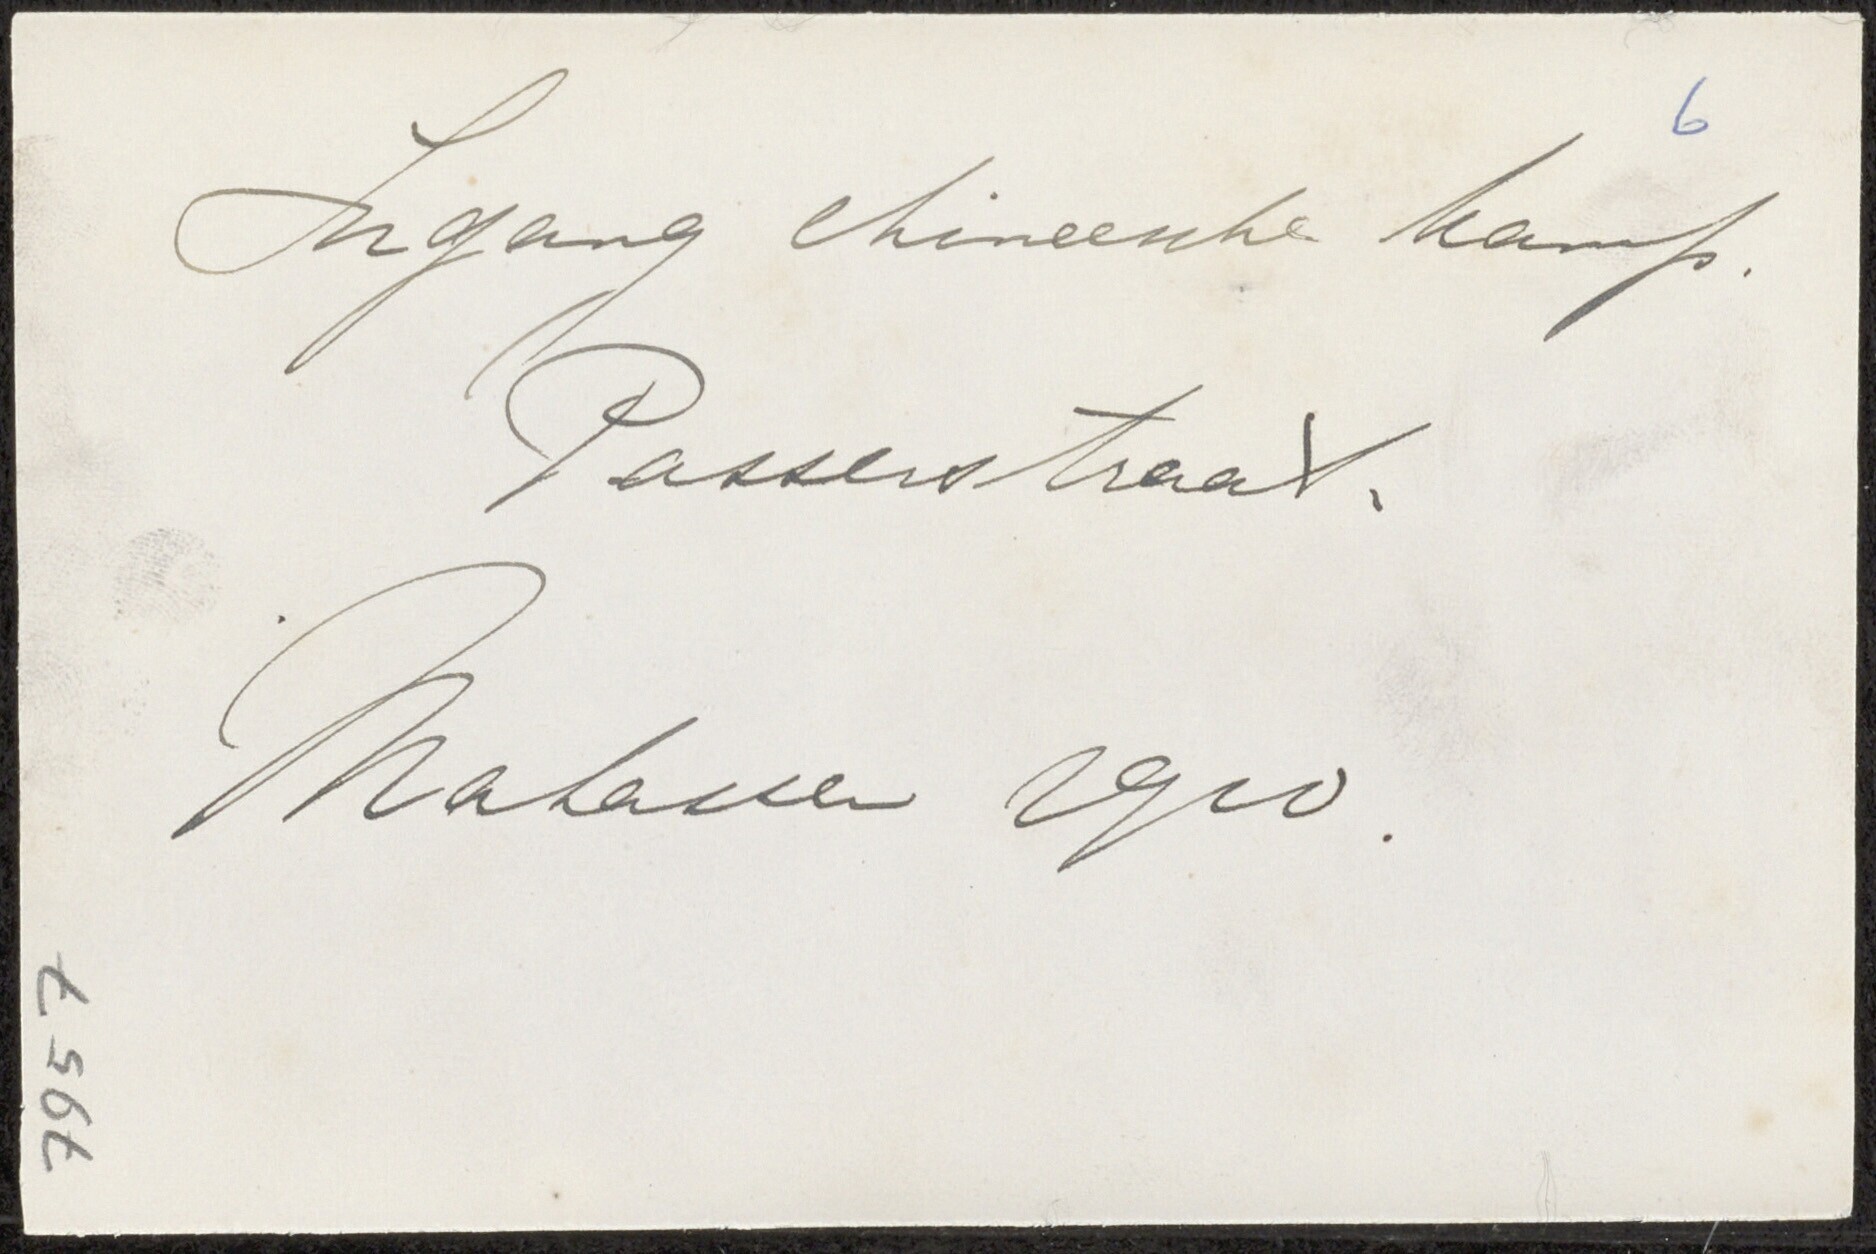 6
Ingang chineesche kamp.
Passerstraat.
Makasser 1910.
7957